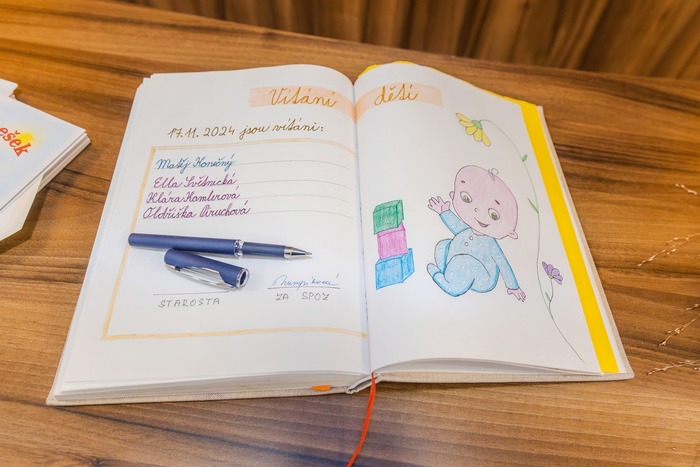 Vítání dětí
17.11. 2024 jsou vítáni:
Matěj Konečný
Ella Světnická
Klára Kamlerová
Oldřiška Piruchová
STAROSTA
ZA SPOZ
ešek